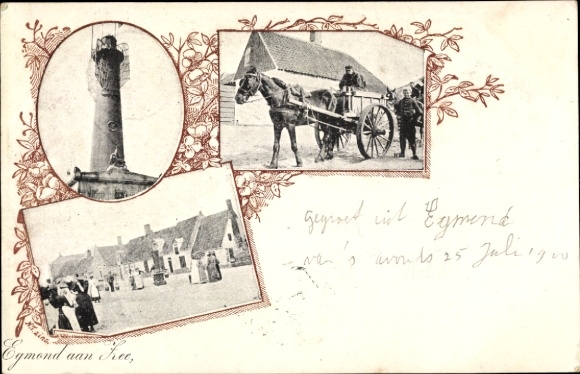 gegroet uit Egmond
van 's avonds 25 Juli 1900
Egmond aan Zee,